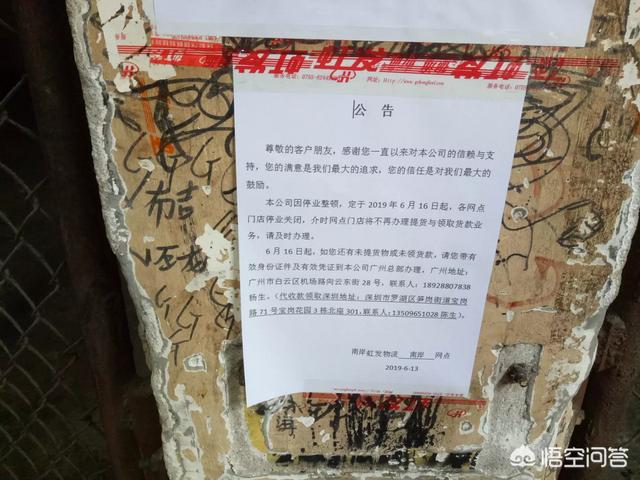 虹发
公 告
尊敬的客户朋友，感谢您一直以来对本公司的信赖与支
持，您的满意是我们最大的追求，您的信任是对我们最大的
鼓励。
本公司因停业整顿，定于 2019 年 6 月 16 日起，各网点
门店停业关闭，介时网点门店将不再办理提货与领取货款业
务，请及时办理。
6 月 16 日起，如您还有未提货物或未领货款，请您带有
效身份证件及有效凭证到本公司广州总部办理，广州地址：
广州市白云区机场路向云东街 28 号，联系人：18928807838
杨生。（代收款领取深圳地址：深圳市罗湖区笋岗街道宝岗
路 71 号宝岗花园 3 栋北座 301，联系人：13509651028 陈生）。
南岸虹发物流 南岸 网点
2019-6-13
悟空问答